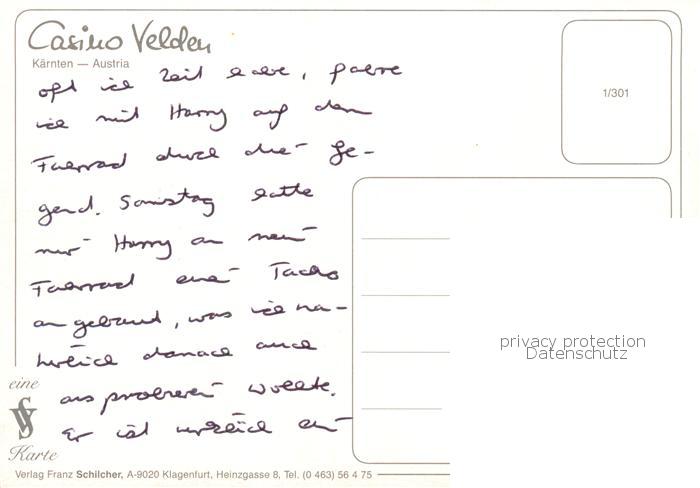 Casino Velden
Kärnten — Austria
1/301
oft ich Zeit habe, fahre
ich mit Harry auf dem
Fahrrad durch die Ge-
gend. Samstag hatte
mir Harry an mein
Fahrrad einen Tacho
angebaut, was ich na-
türlich danach auch
ausprobieren wollte.
Er ist wirklich ein
privacy protection
Datenschutz
eine
VS
Karte
Verlag Franz Schilcher, A-9020 Klagenfurt, Heinzgasse 8, Tel. (0 463) 56 4 75